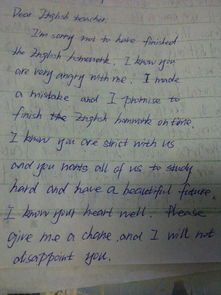 Dear English teacher:
I'm sorry not to have finished
the English homework. I know you
are very angry with me. I made
a mistake and I promise to
finish the English homework on time.
I know you are strict with us
and you wants all of us to study
hard and have a beautiful future.
I know your heart well. Please
give me a chane, and I will not
disappoint you.